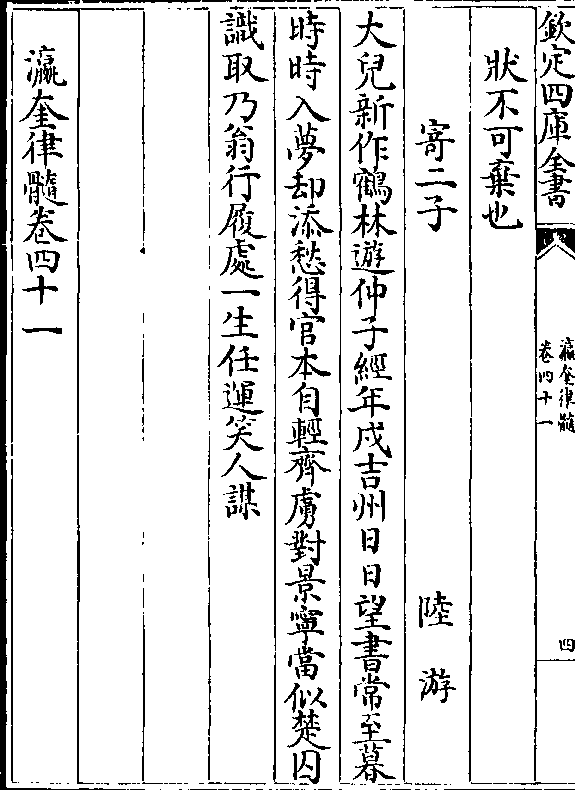 欽定四庫全書
瀛奎律髓
卷四十一
四
狀不可棄也
寄二子 陸游
大兒新作鶴林遊仲子經年戍吉州日日望書常至暮
時時入夢却添愁得官本自輕齊虜對景寧當似楚囚
識取乃翁行履處一生任運笑人謀
瀛奎律髓卷四十一